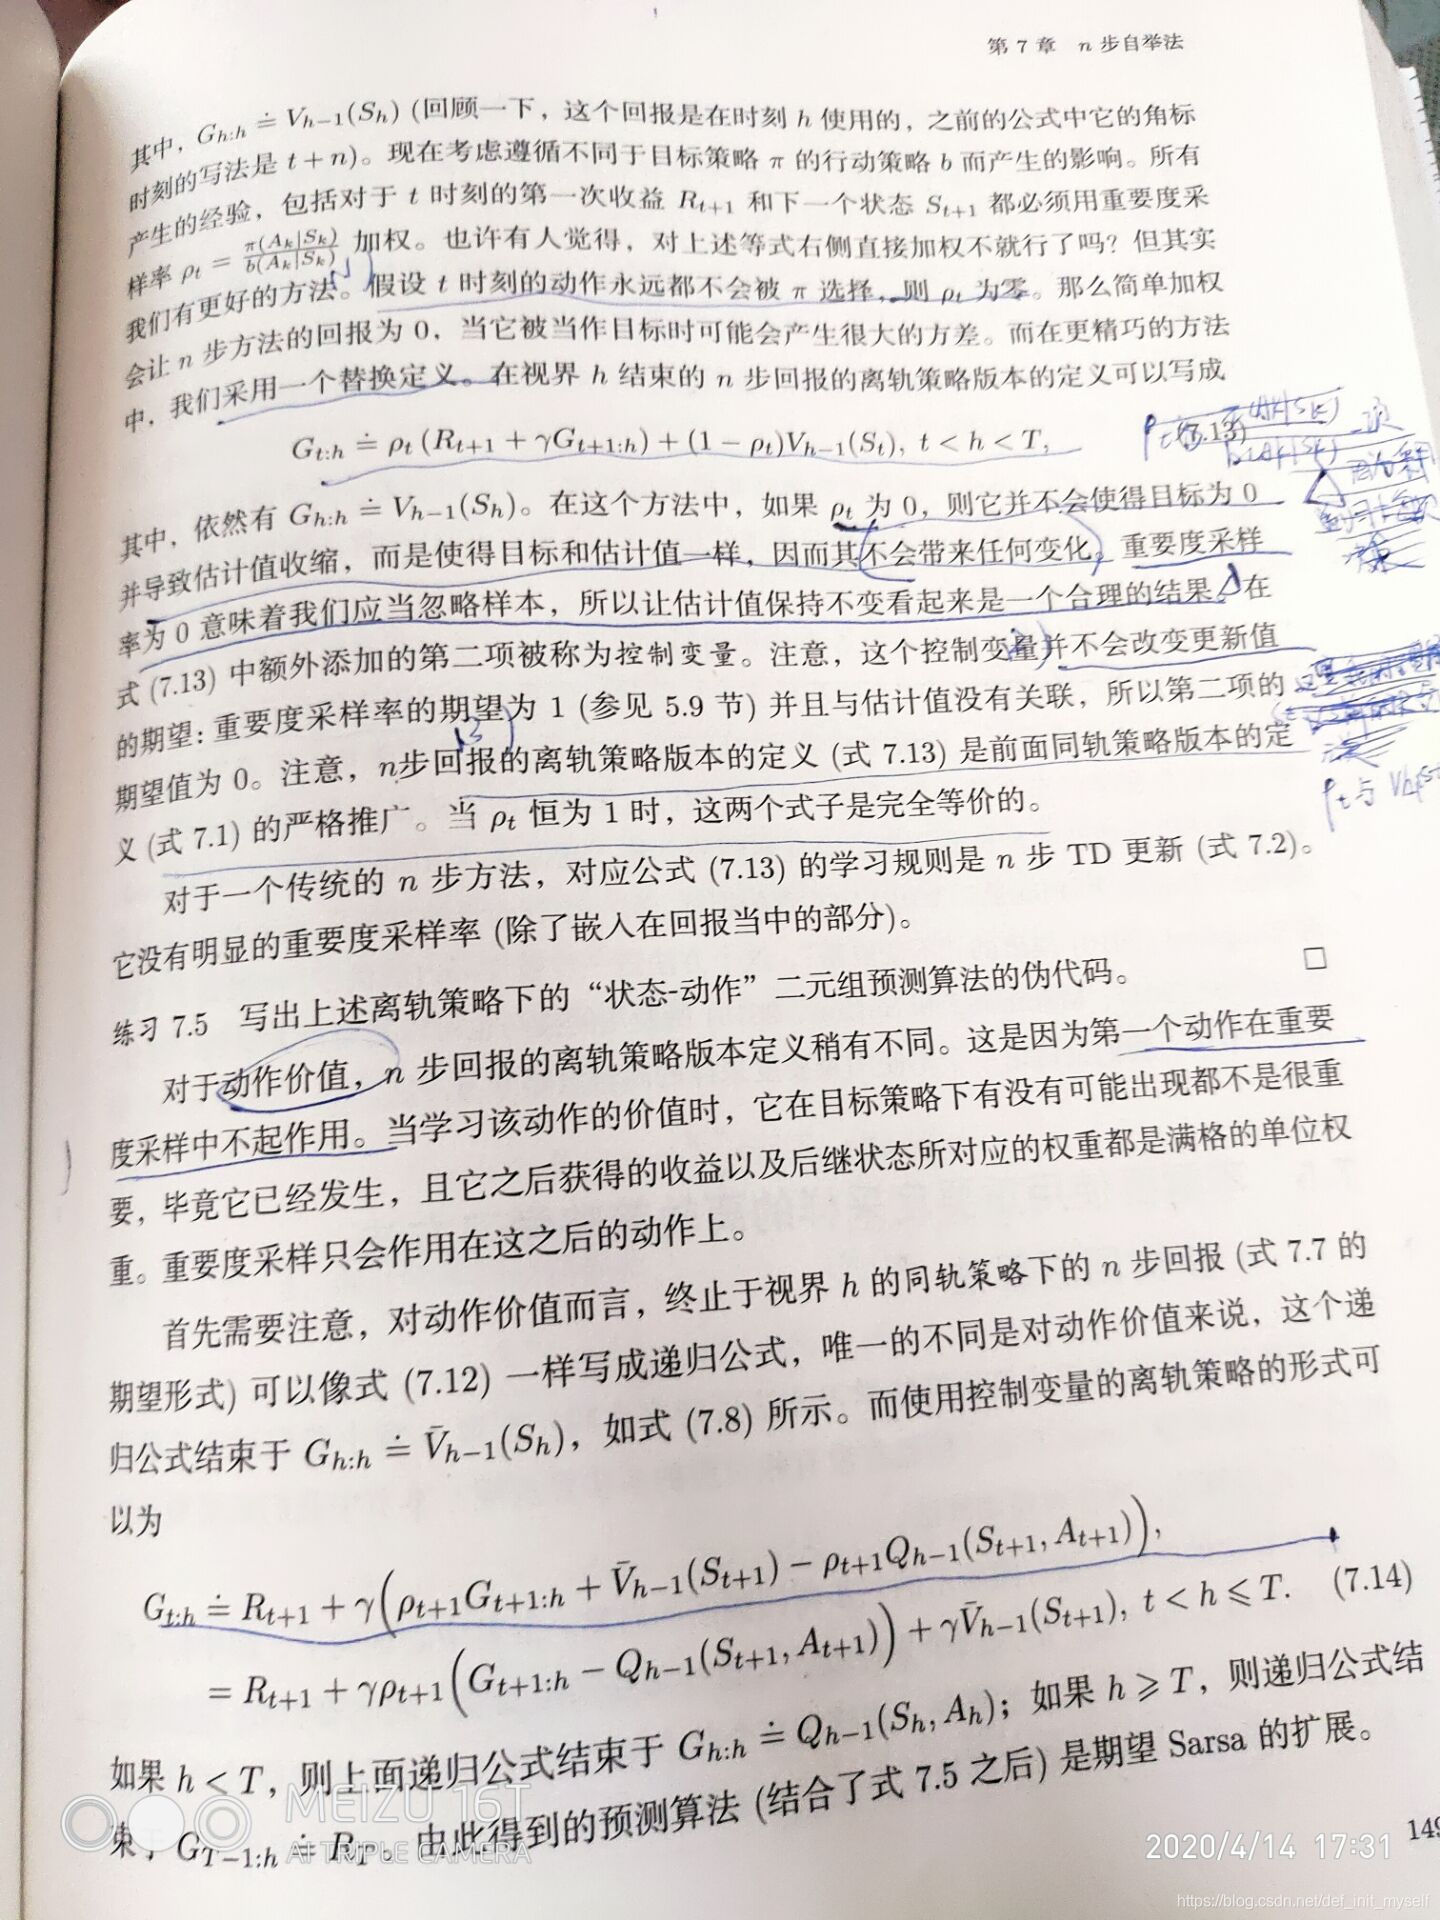 第 7 章 n 步自举法
其中，G_{h:h} ≐ V_{h−1}(S_h) (回顾一下，这个回报是在时刻 h 使用的，之前的公式中它的角标
时刻的写法是 t + n)。现在考虑遵循不同于目标策略 π 的行动策略 b 而产生的影响。所有
产生的经验，包括对于 t 时刻的第一次收益 R_{t+1} 和下一个状态 S_{t+1} 都必须用重要度采
样率 ρ_t = π(A_k|S_k)/b(A_k|S_k) 加权。也许有人觉得，对上述等式右侧直接加权不就行了吗？但其实
我们有更好的方法。假设 t 时刻的动作永远都不会被 π 选择，则 ρ_t 为零。那么简单加权
会让 n 步方法的回报为 0，当它被当作目标时可能会产生很大的方差。而在更精巧的方法
中，我们采用一个替换定义。在视界 h 结束的 n 步回报的离轨策略版本的定义可以写成
G_{t:h} ≐ ρ_t (R_{t+1} + γG_{t+1:h}) + (1 − ρ_t)V_{h−1}(S_t), t < h < T, (7.13)
其中，依然有 G_{h:h} ≐ V_{h−1}(S_h)。在这个方法中，如果 ρ_t 为 0，则它并不会使得目标为 0
并导致估计值收缩，而是使得目标和估计值一样，因而其不会带来任何变化。重要度采样
率为 0 意味着我们应当忽略样本，所以让估计值保持不变看起来是一个合理的结果。在
式 (7.13) 中额外添加的第二项被称为控制变量。注意，这个控制变量并不会改变更新值
的期望：重要度采样率的期望为 1 (参见 5.9 节) 并且与估计值没有关联，所以第二项的
期望值为 0。注意，n步回报的离轨策略版本的定义 (式 7.13) 是前面同轨策略版本的定
义 (式 7.1) 的严格推广。当 ρ_t 恒为 1 时，这两个式子是完全等价的。
ρ_t与
对于一个传统的 n 步方法，对应公式 (7.13) 的学习规则是 n 步 TD 更新 (式 7.2)。
它没有明显的重要度采样率 (除了嵌入在回报当中的部分)。
练习 7.5 写出上述离轨策略下的“状态-动作”二元组预测算法的伪代码。 □
对于动作价值，n 步回报的离轨策略版本定义稍有不同。这是因为第一个动作在重要
度采样中不起作用。当学习该动作的价值时，它在目标策略下有没有可能出现都不是很重
要，毕竟它已经发生，且它之后获得的收益以及后继状态所对应的权重都是满格的单位权
重。重要度采样只会作用在这之后的动作上。
首先需要注意，对动作价值而言，终止于视界 h 的同轨策略下的 n 步回报 (式 7.7 的
期望形式) 可以像式 (7.12) 一样写成递归公式，唯一的不同是对动作价值来说，这个递
归公式结束于 G_{h:h} ≐ V̄_{h−1}(S_h)，如式 (7.8) 所示。而使用控制变量的离轨策略的形式可
以为
G_{t:h} ≐ R_{t+1} + γ(ρ_{t+1}G_{t+1:h} + V̄_{h−1}(S_{t+1}) − ρ_{t+1}Q_{h−1}(S_{t+1}, A_{t+1})),
= R_{t+1} + γρ_{t+1}(G_{t+1:h} − Q_{h−1}(S_{t+1}, A_{t+1})) + γV̄_{h−1}(S_{t+1}), t < h ⩽ T. (7.14)
如果 h < T，则上面递归公式结束于 G_{h:h} ≐ Q_{h−1}(S_h, A_h)；如果 h ⩾ T，则递归公式结
束，G_{T−1:h} ≐ R_T。由此得到的预测算法 (结合了式 7.5 之后) 是期望 Sarsa 的扩展。
149
MEIZU 16T
AI TRIPLE CAMERA
2020/4/14 17:31
https://blog.csdn.net/def_init_myself